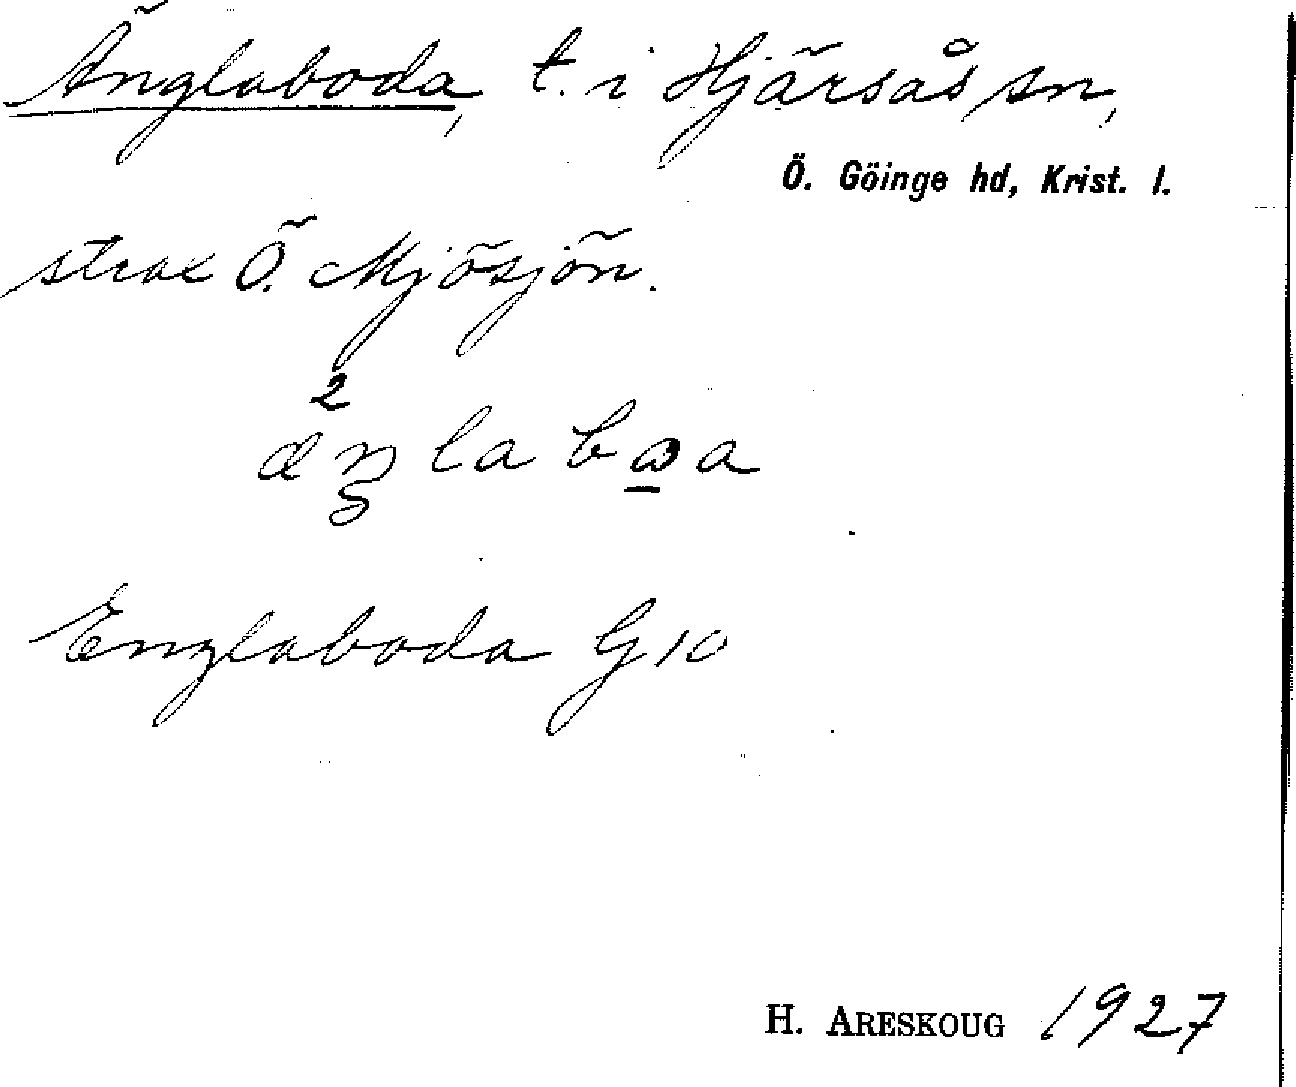 Änglaboda, t. i Hjärsås sn,
Ö. Göinge hd, Krist. l.
strax Ö. Mjösjön.
Englaboda G10
H. ARESKOUG 1927